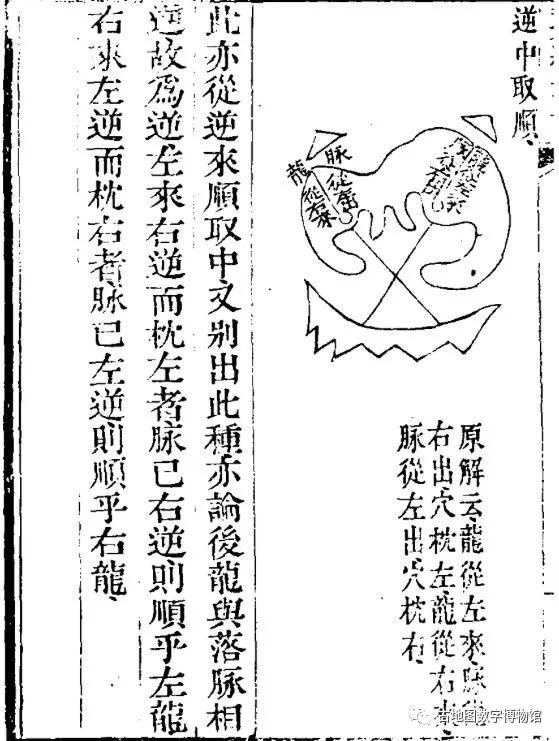 逆中取順
龍從右來
脉從左出
原解云龍從左來脉從
右出穴枕左龍從右來
脉從左出穴枕右
此亦從逆來順取中又别出此種亦論後龍與落脉相
逆故爲逆左來右逆而枕左者脉已右逆則順乎左龍
右來左逆而枕右者脉已左逆則順乎右龍
古地图数字博物馆